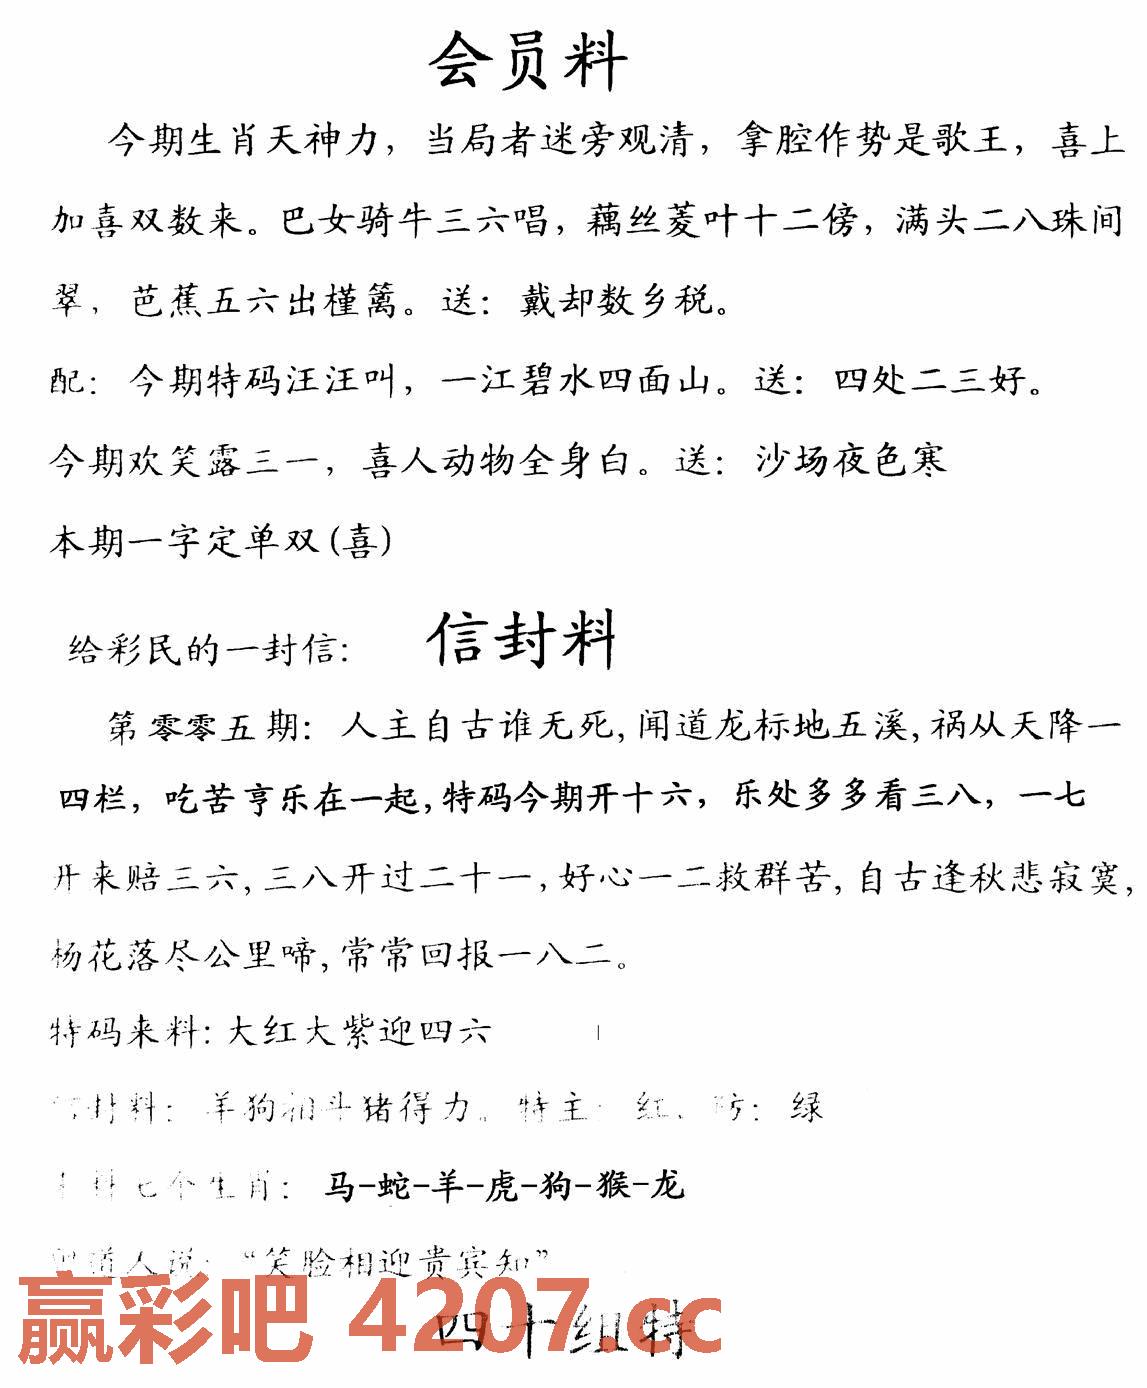 会员料
今期生肖天神力，当局者迷旁观清，拿腔作势是歌王，喜上
加喜双数来。巴女骑牛三六唱，藕丝菱叶十二傍，满头二八珠间
翠，芭蕉五六出槿篱。送：戴却数乡税。
配：今期特码汪汪叫，一江碧水四面山。送：四处二三好。
今期欢笑露三一，喜人动物全身白。送：沙场夜色寒
本期一字定单双(喜)
给彩民的一封信: 信封料
第零零五期：人主自古谁无死,闻道龙标地五溪,祸从天降一
四栏，吃苦亨乐在一起,特码今期开十六，乐处多多看三八，一七
开来赔三六,三八开过二十一,好心一二救群苦,自古逢秋悲寂寞,
杨花落尽公里啼,常常回报一八二。
特码来料:大红大紫迎四六
封料：羊狗相斗猪得力。特主：红、防：绿
七个生肖：马-蛇-羊-虎-狗-猴-龙
道人说：“笑脸相迎贵宾知”
赢彩吧 4207.cc
四十组特